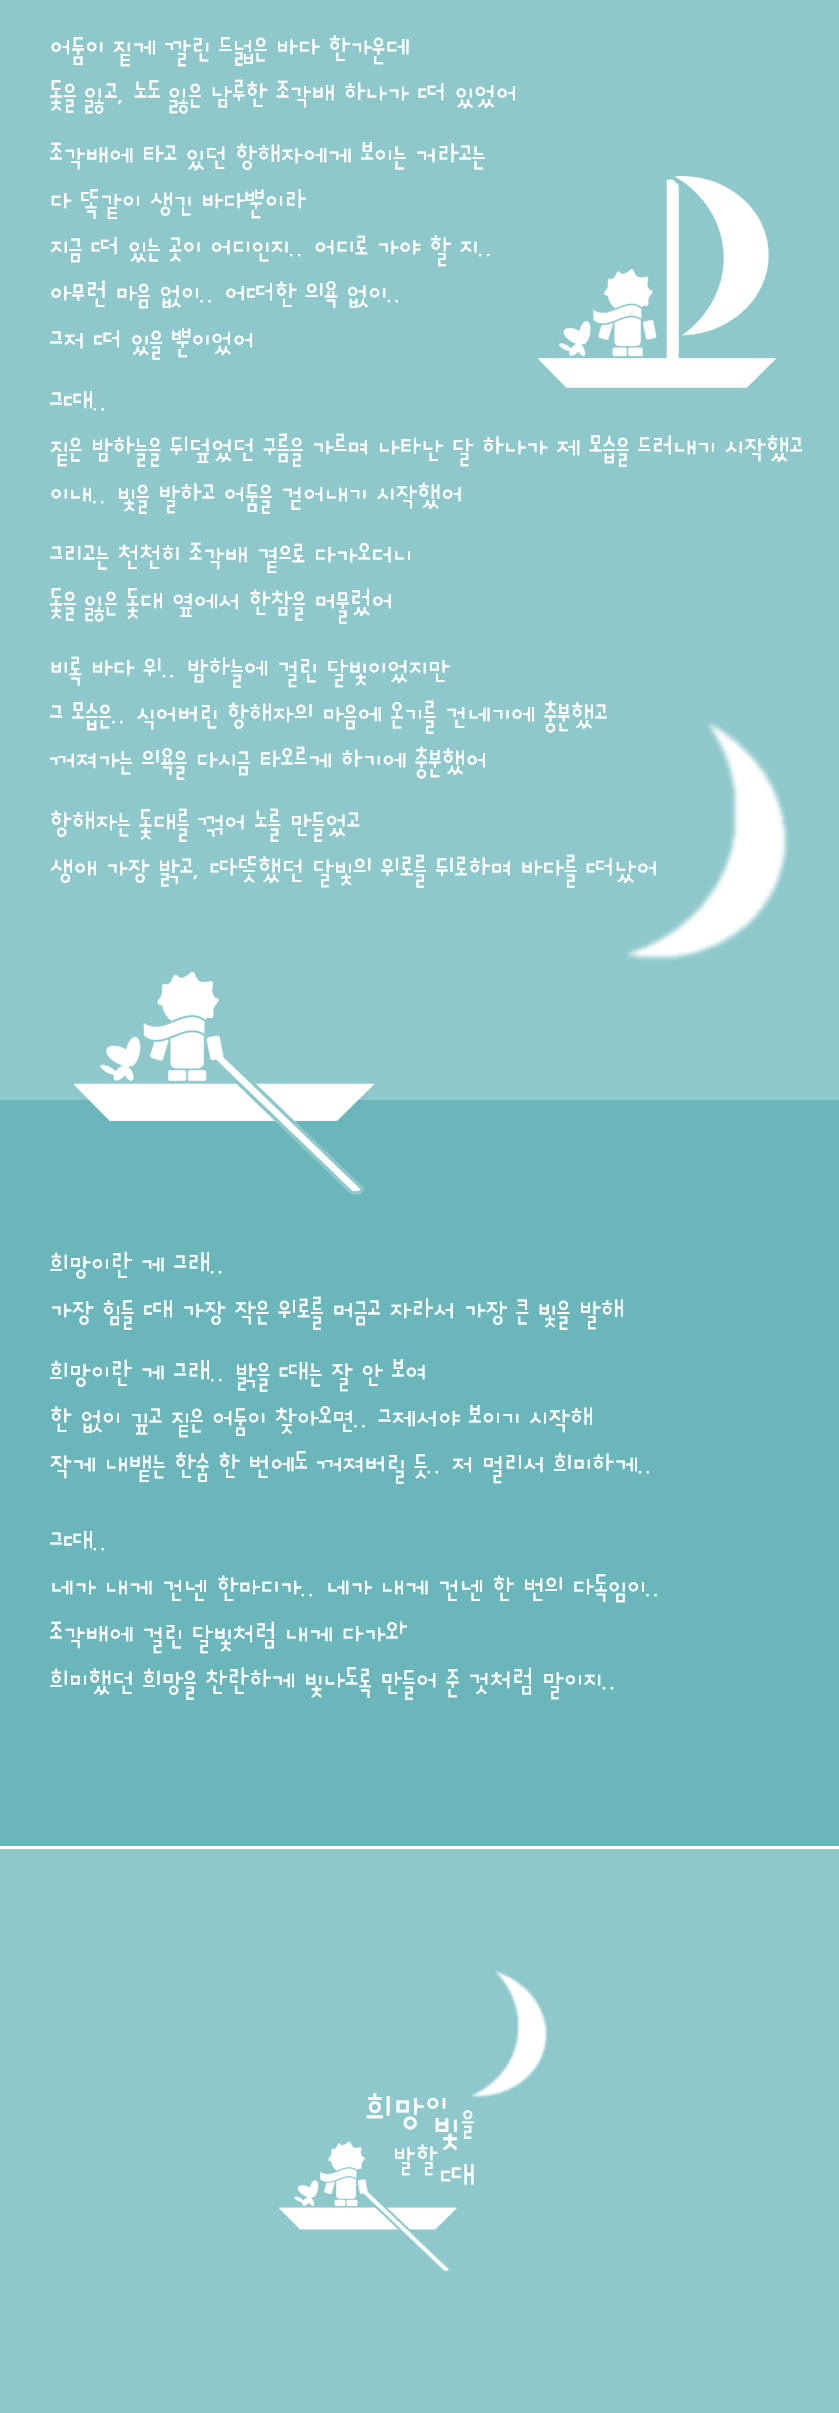 어둠이 짙게 깔린 드넓은 바다 한가운데
돛을 잃고, 노도 잃은 남루한 조각배 하나가 떠 있었어
조각배에 타고 있던 항해자에게 보이는 거라고는
다 똑같이 생긴 바다뿐이라
지금 떠 있는 곳이 어디인지.. 어디로 가야 할 지..
아무런 마음 없이.. 어떠한 의욕 없이..
그저 떠 있을 뿐이었어
그때..
짙은 밤하늘을 뒤덮었던 구름을 가르며 나타난 달 하나가 제 모습을 드러내기 시작했고
이내.. 빛을 발하고 어둠을 걷어내기 시작했어
그리고는 천천히 조각배 곁으로 다가오더니
돛을 잃은 돛대 옆에서 한참을 머물렀어
비록 바다 위.. 밤하늘에 걸린 달빛이었지만
그 모습은.. 식어버린 항해자의 마음에 온기를 건네기에 충분했고
꺼져가는 의욕을 다시금 타오르게 하기에 충분했어
항해자는 돛대를 꺾어 노를 만들었고
생애 가장 밝고, 따뜻했던 달빛의 위로를 뒤로하며 바다를 떠났어
희망이란 게 그래..
가장 힘들 때 가장 작은 위로를 머금고 자라서 가장 큰 빛을 발해
희망이란 게 그래.. 밝을 때는 잘 안 보여
한 없이 깊고 짙은 어둠이 찾아오면.. 그제서야 보이기 시작해
작게 내뱉는 한숨 한 번에도 꺼져버릴 듯.. 저 멀리서 희미하게..
그때..
네가 내게 건넨 한마디가.. 네가 내게 건넨 한 번의 다독임이..
조각배에 걸린 달빛처럼 내게 다가와
희미했던 희망을 찬란하게 빛나도록 만들어 준 것처럼 말이지..
희망이 빛을
발할 때